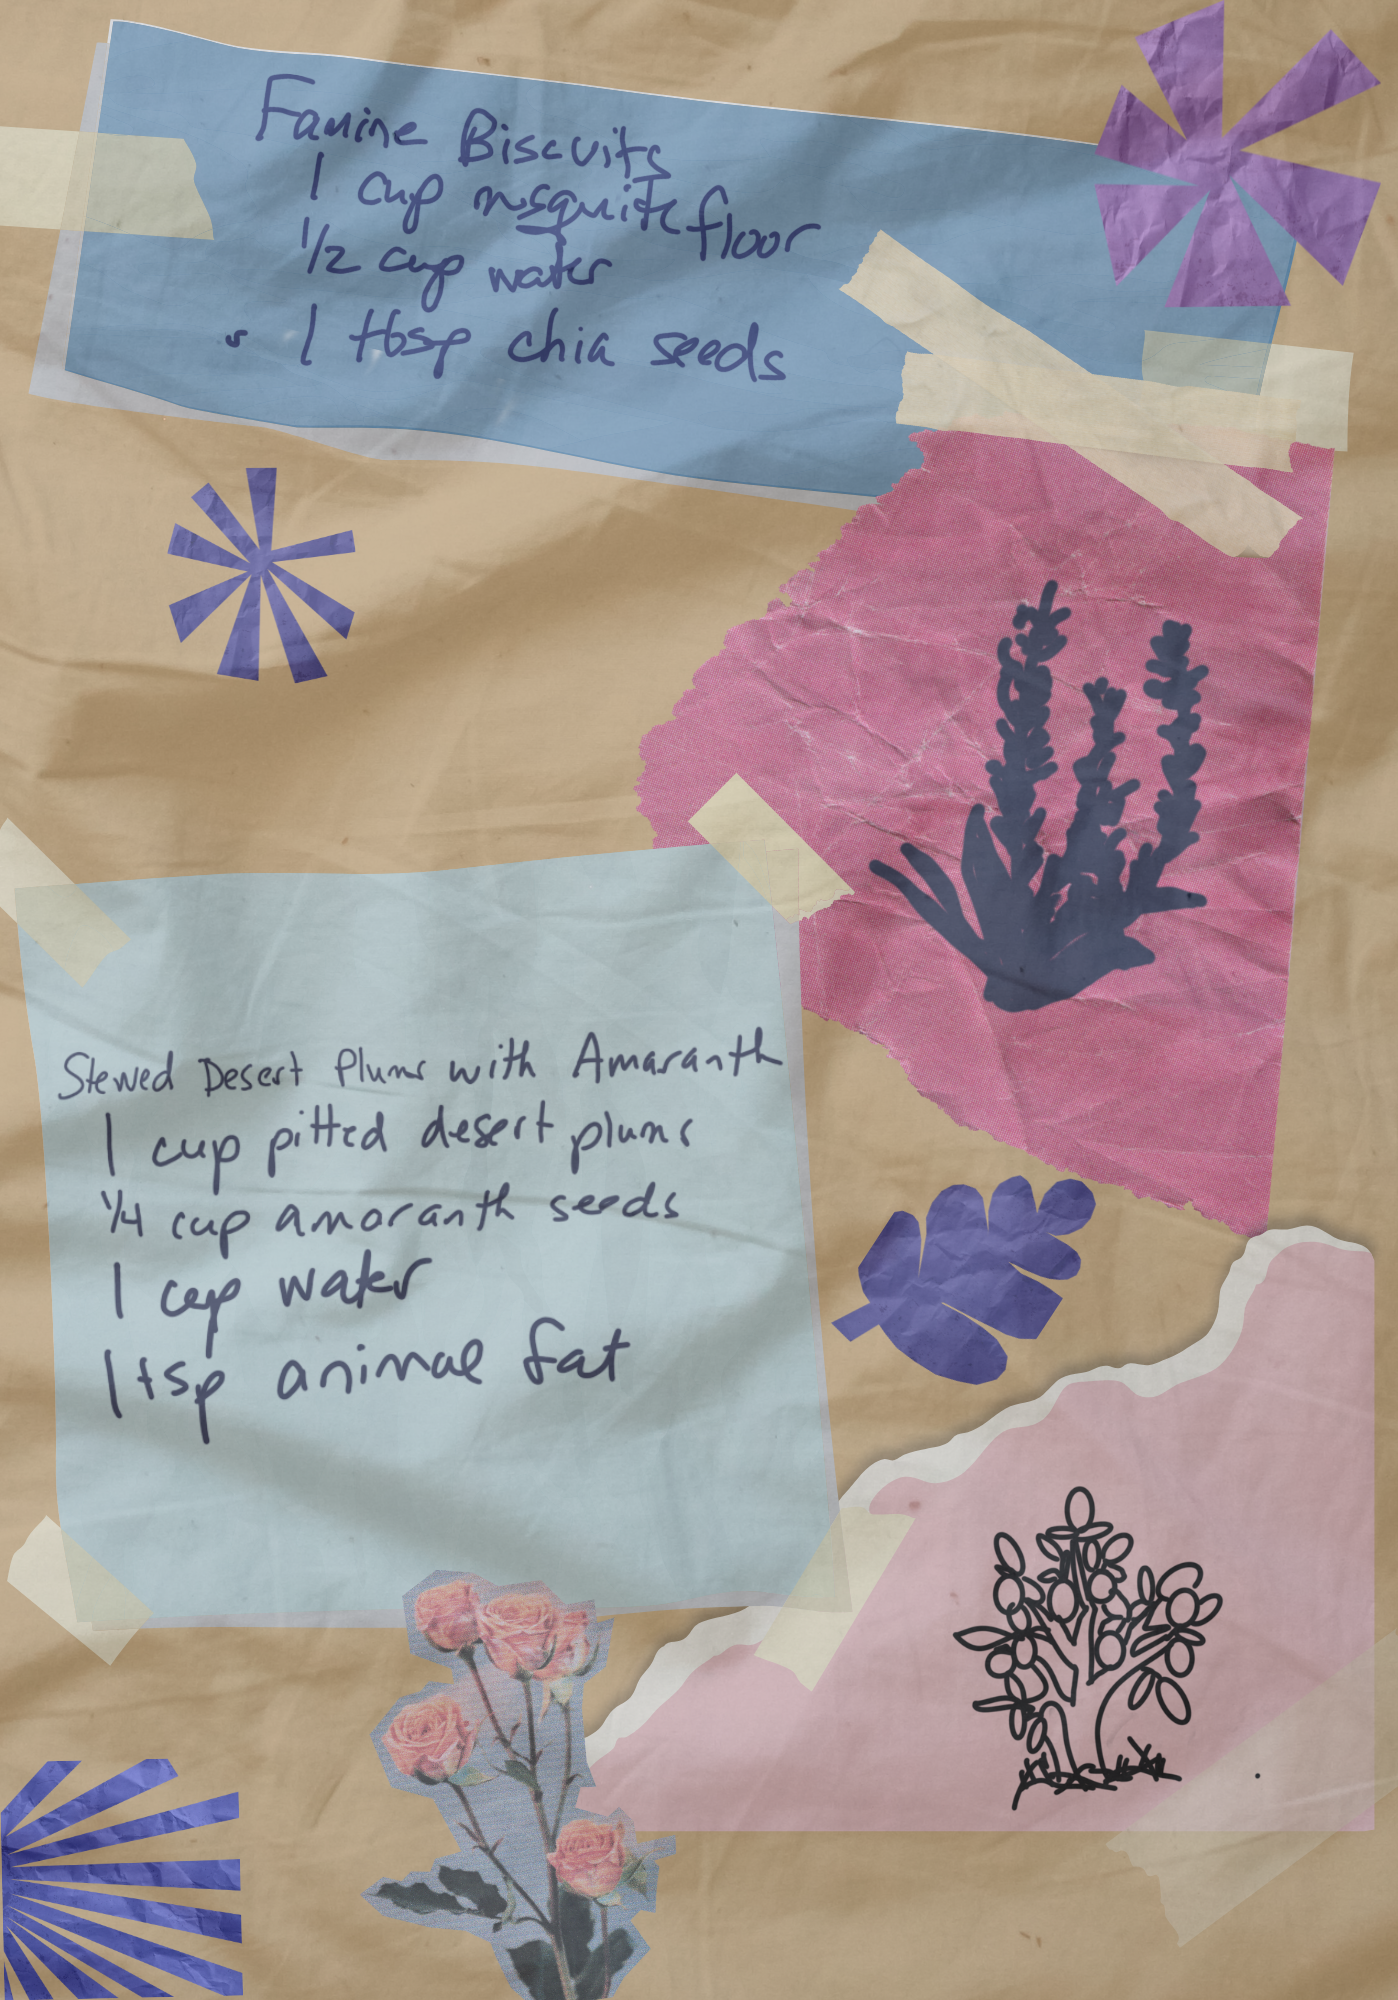 Famine Biscuits
1 cup msquite floor
1/2 cup water
1 tbsp chia seeds
Stewed Desert Plums with Amaranth
1 cup pitted desert plums
1/4 cup amaranth seeds
1 cup water
1 tsp animal fat